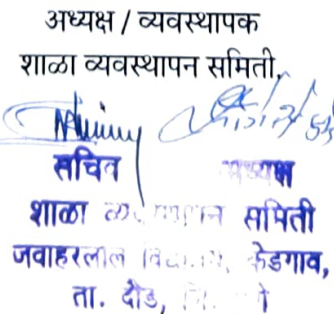 अध्यक्ष / व्यवस्थापक
शाळा व्यवस्थापन समिती,
सचिव अध्यक्ष
शाळा व्यवस्थापन समिती
जवाहरलाल विद्यालय, केडगाव,
ता. दौंड,